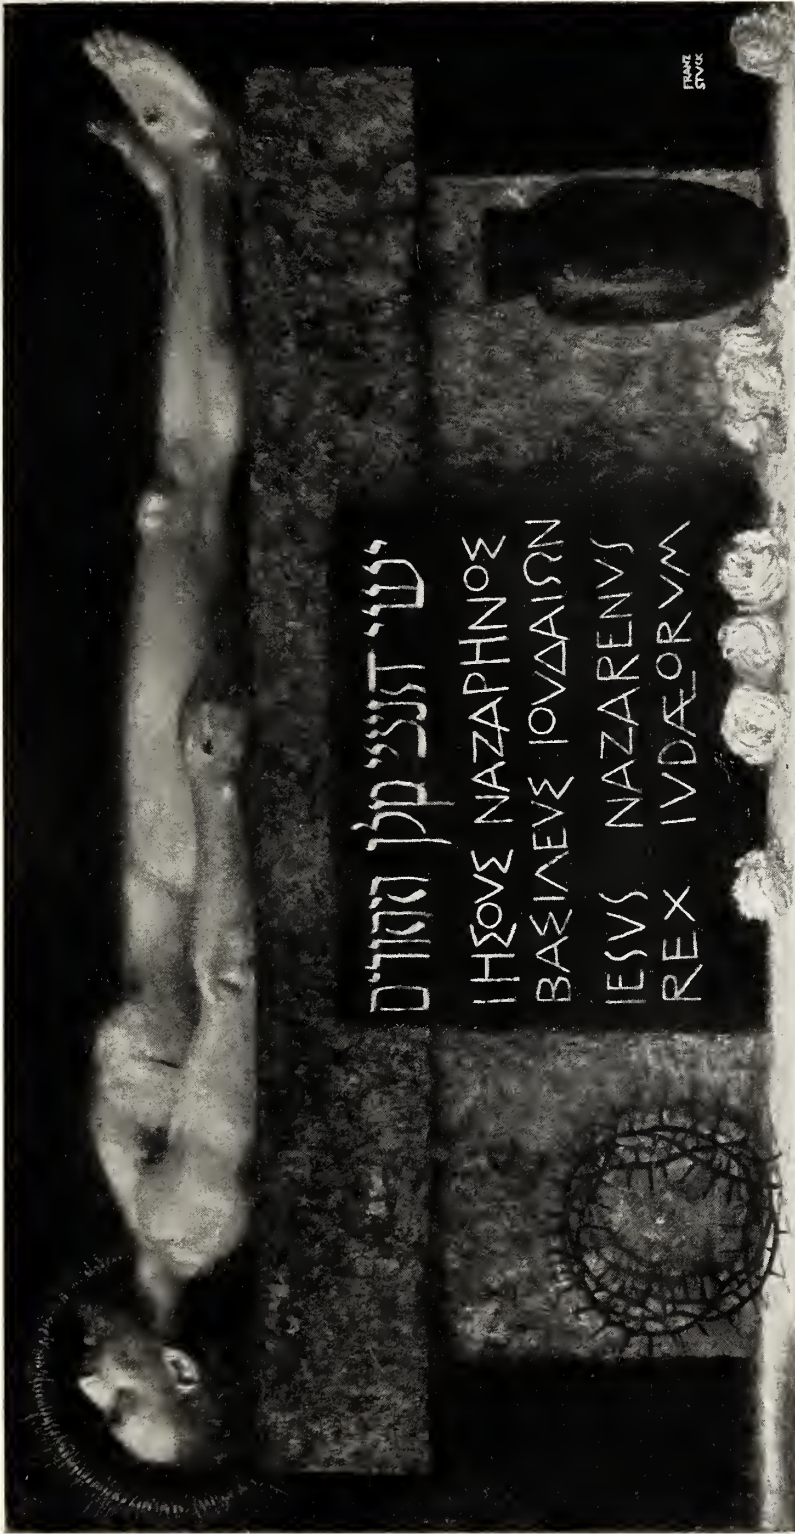 ישוי הנצרי מלך היהודים
ΙΗΣΟVΣ ΝΑΖΑΡΗΝΟΣ
ΒΑΣΙΛΕVΣ ΙΟVΔΑΙΩΝ
IESVS NAZARENVS
REX IVDÆORVM
FRANZ
STVCK